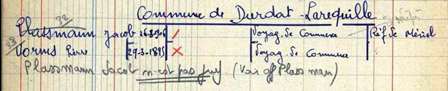 Commune de Durdat-Larequille
Plassmann Jacob Voyag. de Commerce Réf. Se Méziel
Worms Pierre 29.3.1895 x Voyag. de Commerce
Plassmann Jacob n'est pas juif (Voir aff Plassman)